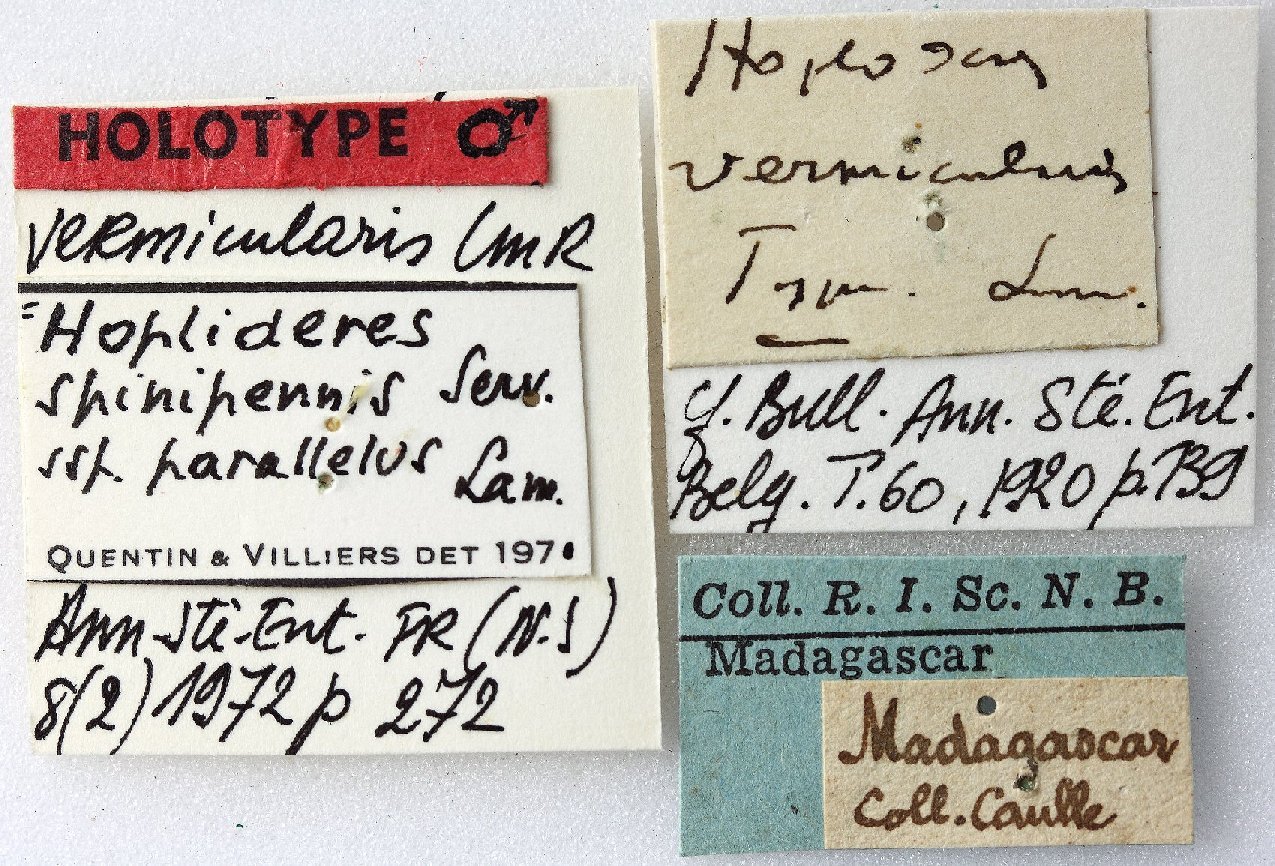 HOLOTYPE ♂
vermicularis LmR
= Hoplideres
spinipennis Serv.
ssp. parallelus Lam.
QUENTIN & VILLIERS DET 197
Ann. Sté. Ent. FR (N.S)
8(2) 1972 p 272
vermicularis
Type. Lm.
cf. Bull. Ann. Sté. Ent.
Belg. T.60, 1920 p.139
Coll. R. I. Sc. N. B.
Madagascar
Madagascar
Coll. Caulle